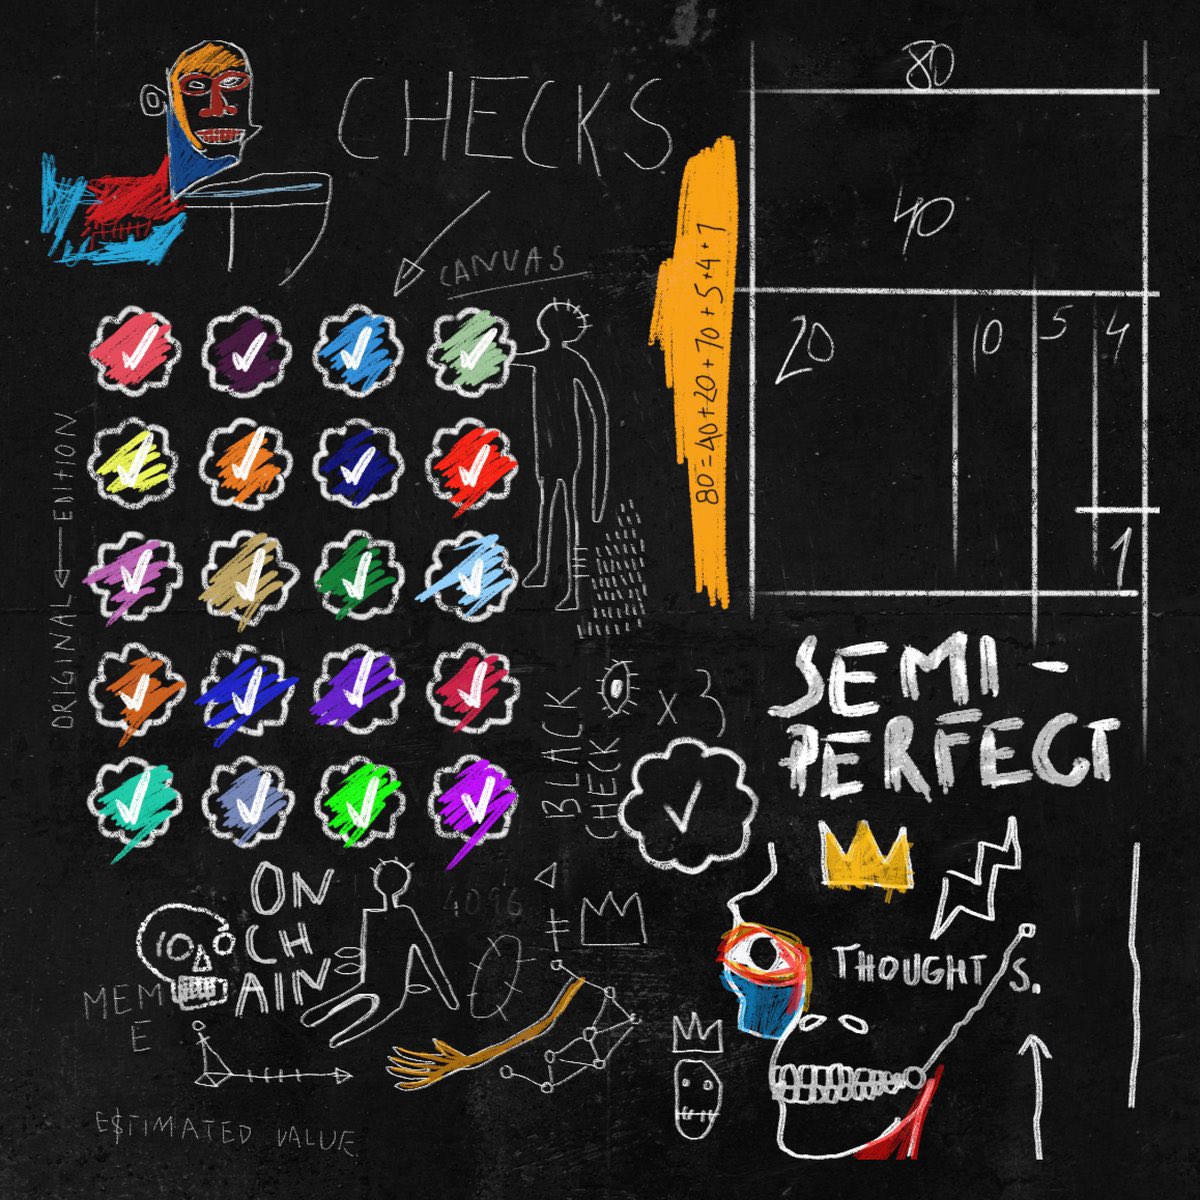 CHECKS
80
40
20
10
5
4
1
80=40+20+10+5+4+1
CANVAS
ORIGINAL ← EDITION
BLACK
CHECK
x 3
SEMI-
PERFECT
THOUGHTS.
ON
CH
AIN
4096
MEM
E
ESTIMATED VALUE